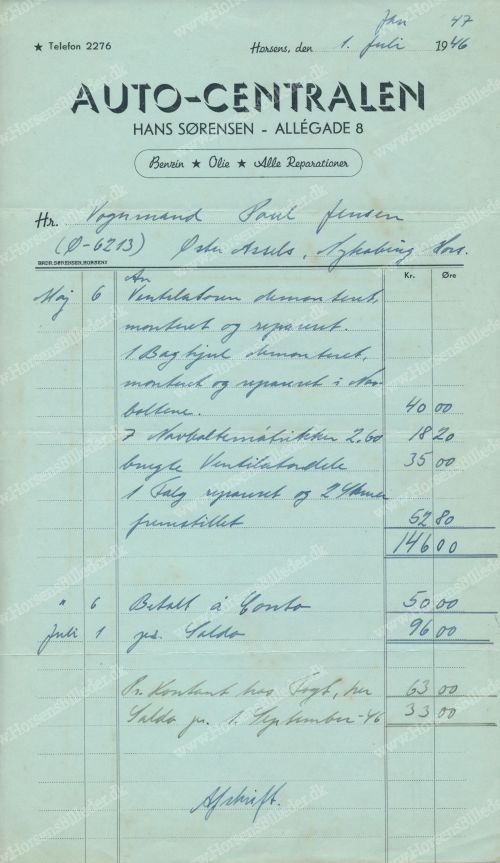 Jan 47
★ Telefon 2276 Horsens, den 1. Juli 1946
AUTO-CENTRALEN
HANS SØRENSEN - ALLÉGADE 8
Benzin ★ Olie ★ Alle Reparationer
Hr. Vognmand Poul Jensen
(Ø-6213) Øster Assels, Nykøbing Mors.
BRDR. SØRENSEN, HORSENS
Kr. Øre
An
Maj 6 Ventilatoren demonteret,
monteret og repareret.
1 Baghjul demonteret,
monteret og repareret i Nav-
boltene. 40 00
7 Navboltemøtrikker 2,60 18 20
brugte Ventilatordele 35 00
1 Fælg repareret og 2 Skruer
fremstillet 52 80
146 00
" 6 Betalt á Conto 50 00
Juli 1 pr. Saldo 96 00
Pr. Kontant hos Fogt, her 63 00
Saldo pr. 1. September-46 33 00
Afskrift.
www.HorsensBilleder.dk